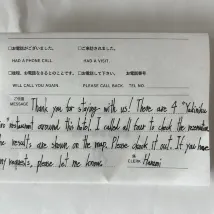 □お電話がございました。 □ご来訪されました。
HAD A PHONE CALL HAD A VISIT
□後程、お電話なさるとのことです。 □お電話して下さい。 お電話番号
WILL CALL YOU AGAIN. PLEASE CALL BACK TEL NO.
ご伝言
MESSAGE Thank you for staying with us! There are 4 "Yakiniku
restaurant around this hotel. I called all four to check the reservation.
The results are shown on the map. Please check it out. If you have
any requests, please let me know.
係
CLERK Hanami